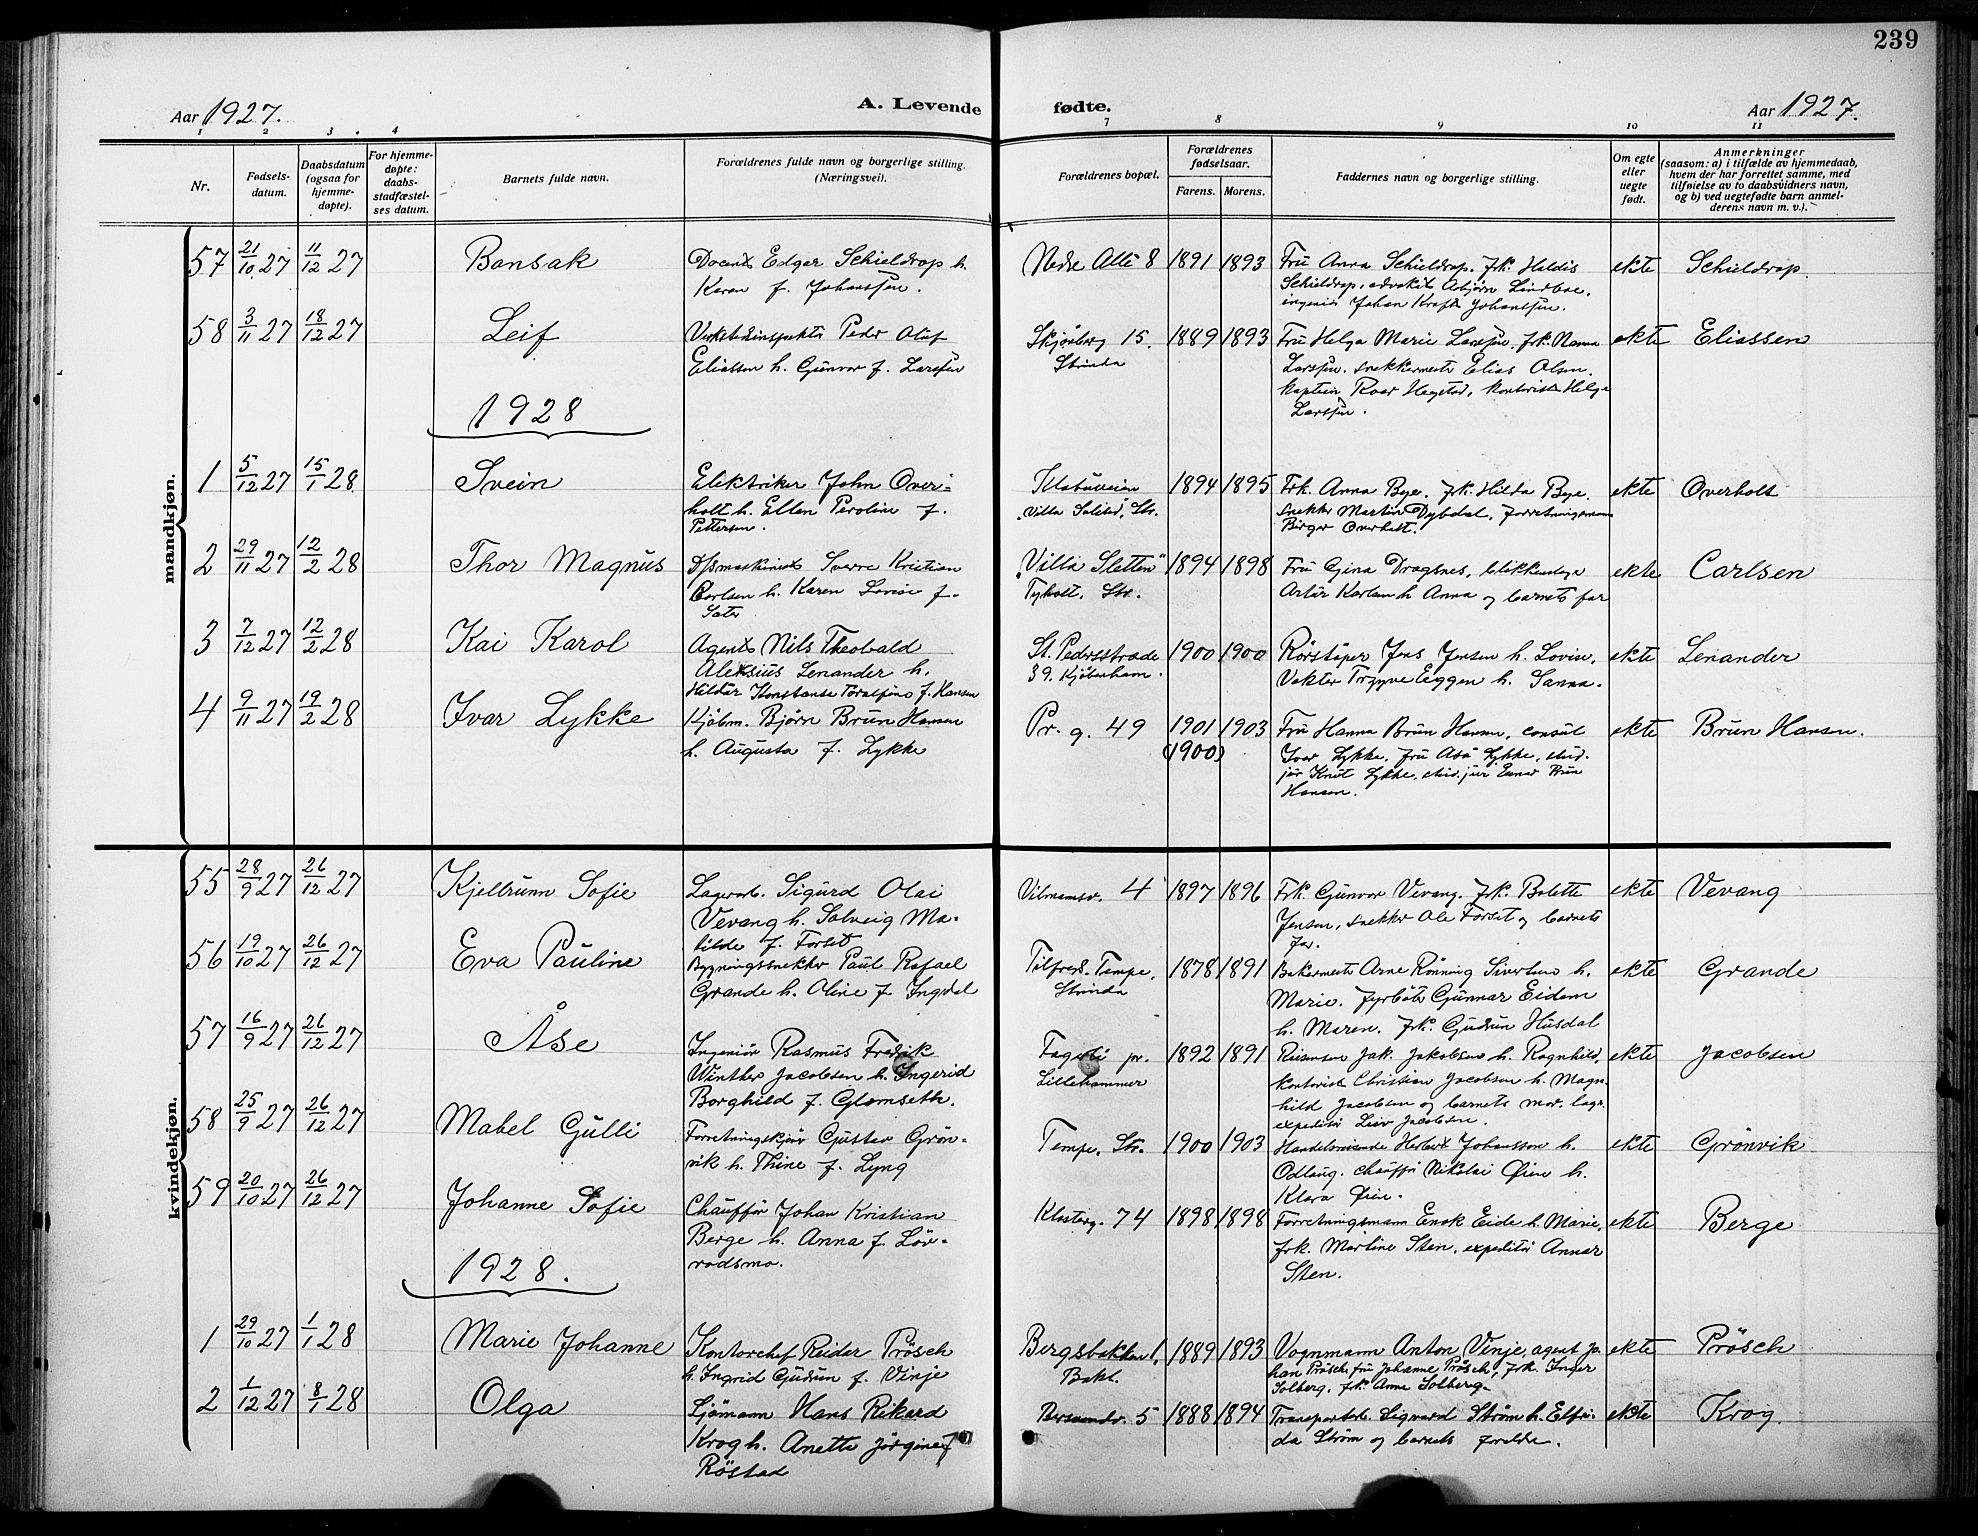 239
Aar 1927.
A. Levende fødte.
Aar 1927.
1 2 3 4 7 8 9 10 11
Nr.
Fødsels-
datum.
Daabsdatum
(ogsaa for
hjemme-
døpte).
For hjemme-
døpte:
daabs-
stadfæstel-
ses datum.
Barnets fulde navn.
Forældrenes fulde navn og borgerlige stilling.
(Næringsvei).
Forældrenes bopæl.
Forældrenes
fødselsaar.
Farens. Morens.
Faddernes navn og borgerlige stilling.
Om egte
eller
uegte
født.
Anmerkninger
(saasom: a) i tilfælde av hjemmedaab,
hvem der har forrettet samme, med
tilføielse av to daabsvidners navn,
og b) ved uegtefødte barn anmel-
derens navn m. v.).
mandkjøn.
57 21/10 27 11/12 27 Bonsak
Docent Edgar Schieldrop h.
Karen f. Johanssen.
Nedre Allé 8 1891 1893
Fru Anna Schieldrop. frk. Haldis
Schieldrop, advokat Asbjørn Lindboe,
ingeniør Johan Kraft Johanssen.
ekte Schieldrop.
58 3/11 27 18/12 27 Leif
Verkstedinspektør Peder Oluf
Eliassen h. Gunvor f. Larssen
Skjønberg 15.
Strinda
1889 1893
Fru Helga Marie Larssen, frk. Nanna
Larssen. snekkermester Elias Olsen.
kaptein Roar Hegstad, kontorist Helge
Larssen.
ekte Eliassen
1928
1 5/12 27 15/1 28 Svein
Elektriker John Over-
holt h. Ellen Peroline f.
Pettersen.
Klæbuveien
"Villa Solstad, Str.
1894 1895
Frk. Anna Bye. frk. Hilda Bye.
snekker Martin Dybdal, forretningsmann
Birger Overholt.
ekte Overholt
2 29/11 27 12/2 28 Thor Magnus
D/smaskinist Sverre Kristian
Carlsen h. Karen Lovise f.
Sæter
"Villa Sletten"
Tyholt, Str.
1894 1898
Fru Gina Dragsnes, blikkenslager
Artur Karlsen h Anna og barnets far
ekte Carlsen
3 7/12 27 12/2 28 Kai Karol
Agent Nils Theobald
Aleksius Lenander h.
Hildur Konstanse Toralfine f. Hansen
St. Pedersstræde
39. Kjøbenhavn.
1900 1900
Rørstøper Jens Jensen h. Lovise,
Vakter Trygve Eggen h. Sanna.
ekte Lenander
4 9/11 27 19/2 28 Ivar Lykke
Kjøbm. Bjørn Brun Hansen
h. Augusta f. Lykke
Pr. g. 49 1901 1903
(1900)
Fru Hanna Brun Hansen, consul
Ivar Lykke, fru Åsa Lykke, stud.
jur Knut Lykke, stud. jur Einar Brun
Hansen.
ekte Brun Hansen.
kvindekjøn.
55 28/9 27 26/12 27 Kjellrunn Sofie
Lagerarb. Sigurd Olai
Vevang h. Solveig Ma-
tilde f. Forset
Vilmannsv. 4 1897 1896
Frk. Gunvor Vevang. frk. Bolette
Jensen, snekker Ole Forset og barnets
far.
ekte Vevang
56 19/10 27 26/12 27 Eva Pauline
Bygningssnekker Paul Rafael
Grande h. Oline f. Ingdal
Tilfreds. Tempe,
Strinda
1878 1891
Bakermester Arne Rønning Sivertsen h.
Marie. fyrbøter Gunnar Eidem
h. Maren. frk. Gudrun Husdal
ekte Grande
57 16/9 27 26/12 27 Åse
Ingeniør Rasmus Fredrik
Winther Jacobsen h. Ingerid
Borghild f. Glomseth.
Fagerli pr.
Lillehammer
1892 1891
Reisende Jak. Jakobsen h. Ragnhild,
kontorist Christian Jacobsen h. Magn-
hild Jacobsen og barnets mor. lagr.
expeditør Leiv Jacobsen.
ekte Jacobsen
58 25/9 27 26/12 27 Mabel Gulli
Forretningskjør Gustav Grøn-
vik h. Thine f. Lyng
Tempe, Str. 1900 1903
Handelsreisende Herbert Johansson h.
Odlaug. chauffør Nikolai Øien h.
Klara Øien.
ekte Grønvik
59 20/10 27 26/12 27 Johanne Sofie
Chauffør Johan Kristian
Berge h. Anna f. Lør-
vodsmo.
Klosterg. 74 1898 1898
Forretningsmann Enok Eide h. Marie,
frk. Martine Sten, expeditør Annar
Sten.
ekte Berge
1928.
1 29/10 27 1/1 28 Marie Johanne
Kontorchef Reidar Prøsch
h. Ingrid Gudrun f. Vinje
Bergsbakken 1,
Bakl.
1889 1893
Vognmann Anton Vinje, agent Jo-
han Prøsch, fru Johanne Prøsch, frk. Inger
Solberg, frk. Anne Solberg.
ekte Prösch
2 1/12 27 8/1 28 Olga
Sjømann Hans Rikard
Krog h. Anette Jørgine f
Røstad
5 1888 1894
Transportarb. Sigvard Strøm h. Elfri-
da Strøm og barnets foreldre.
ekte Krog.